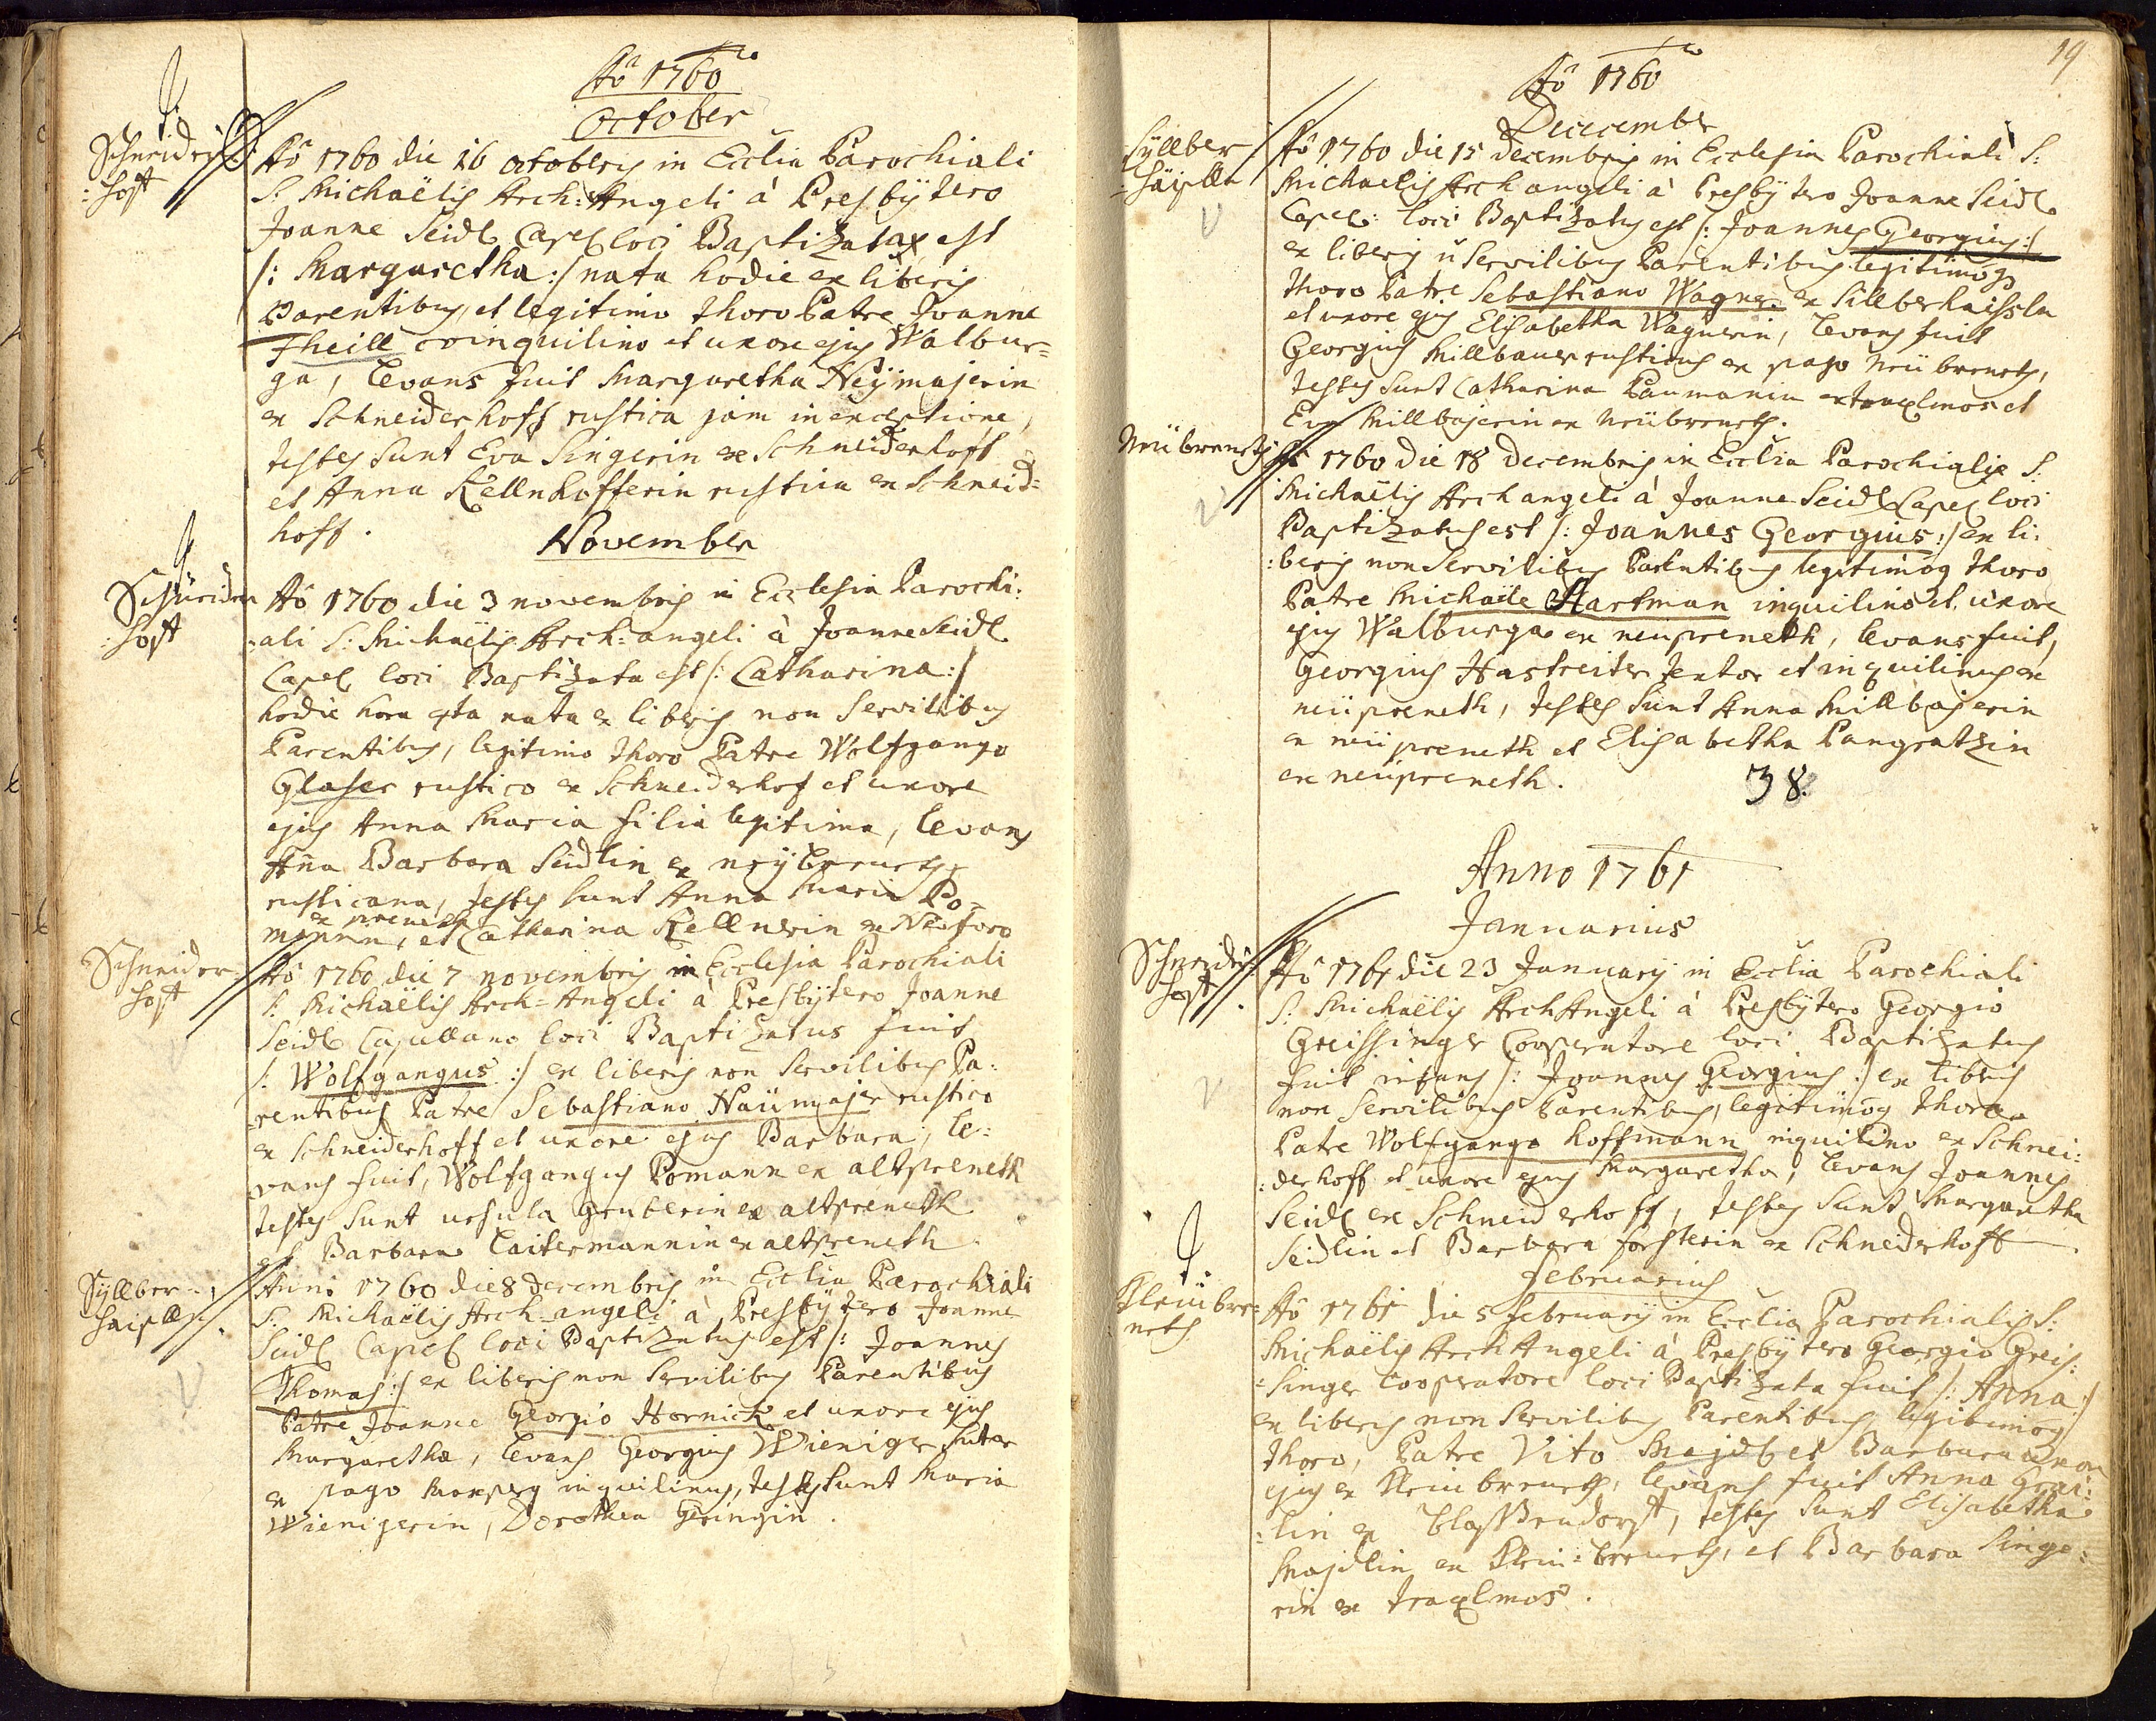 Aõ 1760
October
Schneider
: hoff
Aõ 1760 die 16 octobris in Ecclia Parochiali
S: Michaëlis Arch: Angeli à Presbÿtero
Joanne Seidl Capel loci Baptizata est
/: Margaretha :/ nata hodie ex liberis
Parentibus, et legitimo thoro Patre Joanne
Theill inquilino et uxore ejus Walbur=
ga, levans fuit Margaretha Neÿmajerin
ex Schneiderhoff rustica jam in exceptione,
testes sunt Eva Singerin ex Schneiderhoff
et Anna Kellnhofferin rustica ex Schneid=
hoff.
November
Schneider
: hoff
Aõ 1760 die 3 novembris in Ecclesia Parochi:
:ali S: Michaëlis Arch=angeli à Joanne Seidl
Capel loci Baptizata est /: Catharina :/
hodie hora 4ta nata ex liberis non servilibus
Parentibus, legitimo thoro Patre Wolfgango
Glaser rustico ex Schneiderhof et uxore
ejus Anna Maria filia legitima, levans
Aña Barbara Seidlin ex neÿbreneth
rusticana, testes sunt Anna Maria Po=
manin, ex preneth et Catharina Kellnerin ex Neoforo
Schneider
hoff
Aõ 1760 die 7 novembris in Ecclesia Parochiali
S: Michaëlis Arch=Angeli à Presbÿtero Joanne
Seidl Capellano loci Baptizatus fuit
/: Wolfgangus :/ ex liberis non servilibus Pa:
:rentibus Patre Sebastiano Naümajer rustico
ex Schneiderhoff et uxore ejus Barbara, le:
vans fuit, Wolfgangus Pomann ex altpreneth
testes sunt ursula Gruberin ex altpreneth
et Barbara Laitermannin ex altpreneth.
Sÿllber
haisll
Anno 1760 die 8 decembris in Ecclia Parochiali
S: Michaëlis Arch=angeli à Presbÿtero Joanne
Seidl Capel loci Baptizatus est /: Joannes
Thomas :/ ex liberis non servilibus Parentibus
Patre Joanne Georgio Hornick et uxore ejus
Margaretha, levans Georgius Wieniger sutor
ex pago inquilinus, testes sunt Maria
Wienigerin, Dorothea Geringin.
19
Aõ 1760
Dececember
Sÿllber
: häusln
Aõ 1760 die 15 decembris in Ecclesia Parochiali S:
Michaelis Archangeli à Presbÿtero Joanne Seidl
Capel: loci Baptizatus est /: Joannes Georgius :/
ex liberis ñ servilibus Parentibus legitimoq
thoro Patre Sebastiano Wagner ex Sillberhaissln
et uxore ejus Elisabetha Wagnerin, levans fuit
Georgius Millbauer rusticus ex pago neübreneth,
testes sunt Catharina Paumanin ex traxlmos et
Eva Millbajerin ex neübreneth.
Neübreneth
Aõ 1760 die 18 decembris in Ecclia Parochialis S:
Michaëlis Archangeli à Joanne Seidl Capel loci
Baptizatus est /: Joannes Georgius :/ ex li:
:beris non servilibus Parentibus legitimoq thoro
Patre Michaële Hartman inquilino et uxore
ejus Walburga ex neüpreneth, levans fuit,
Georgius Hastreiter textor et inquilinus ex
neüpreneth, testes sunt Anna Millbajerin
ex neüpreneth et Elisabetha Pangratzin
ex neüpreneth. 38.
Anno 1761
Januarius
Schneider
hoff
Aõ 1761 die 23 Januarÿ in Ecclia Parochiali
S: Michaëlis ArchAngeli à Presbÿtero Georgio
Greissinger Cooperatore loci Baptizatus
fuit infans /: Joannes Georgius :/ ex liberis
non servilibus Parentibus, legitimoq thoro
Patre Wolfgango hoffmann inquilino ex Schnei:
:derhoff et uxore ejus Margaretha, levans Joannes
Seidl ex Schneiderhoff, testes sunt Margaretha
Seidlin et Barbara forsterin ex Schneiderhoff.
februarius
Kleinbre
neth
Aõ 1761 die 5 februarÿ in Ecclia Parochialis S:
Michaëlis ArchAngeli à Presbÿtero Georgio Greis:
:singer Cooperatore loci Baptizata fuit /: Anna :/
ex liberis non servilibus Parentibus, legitimoq
thoro, Patre Vito Majdl et Barbara uxore
ejus ex Kleinbreneth, levans fuit Anna
:lin ex testes sunt Elisabetha
Majdlin ex Klein:breneth, et Barbara Singe:
rin ex traxlmos.